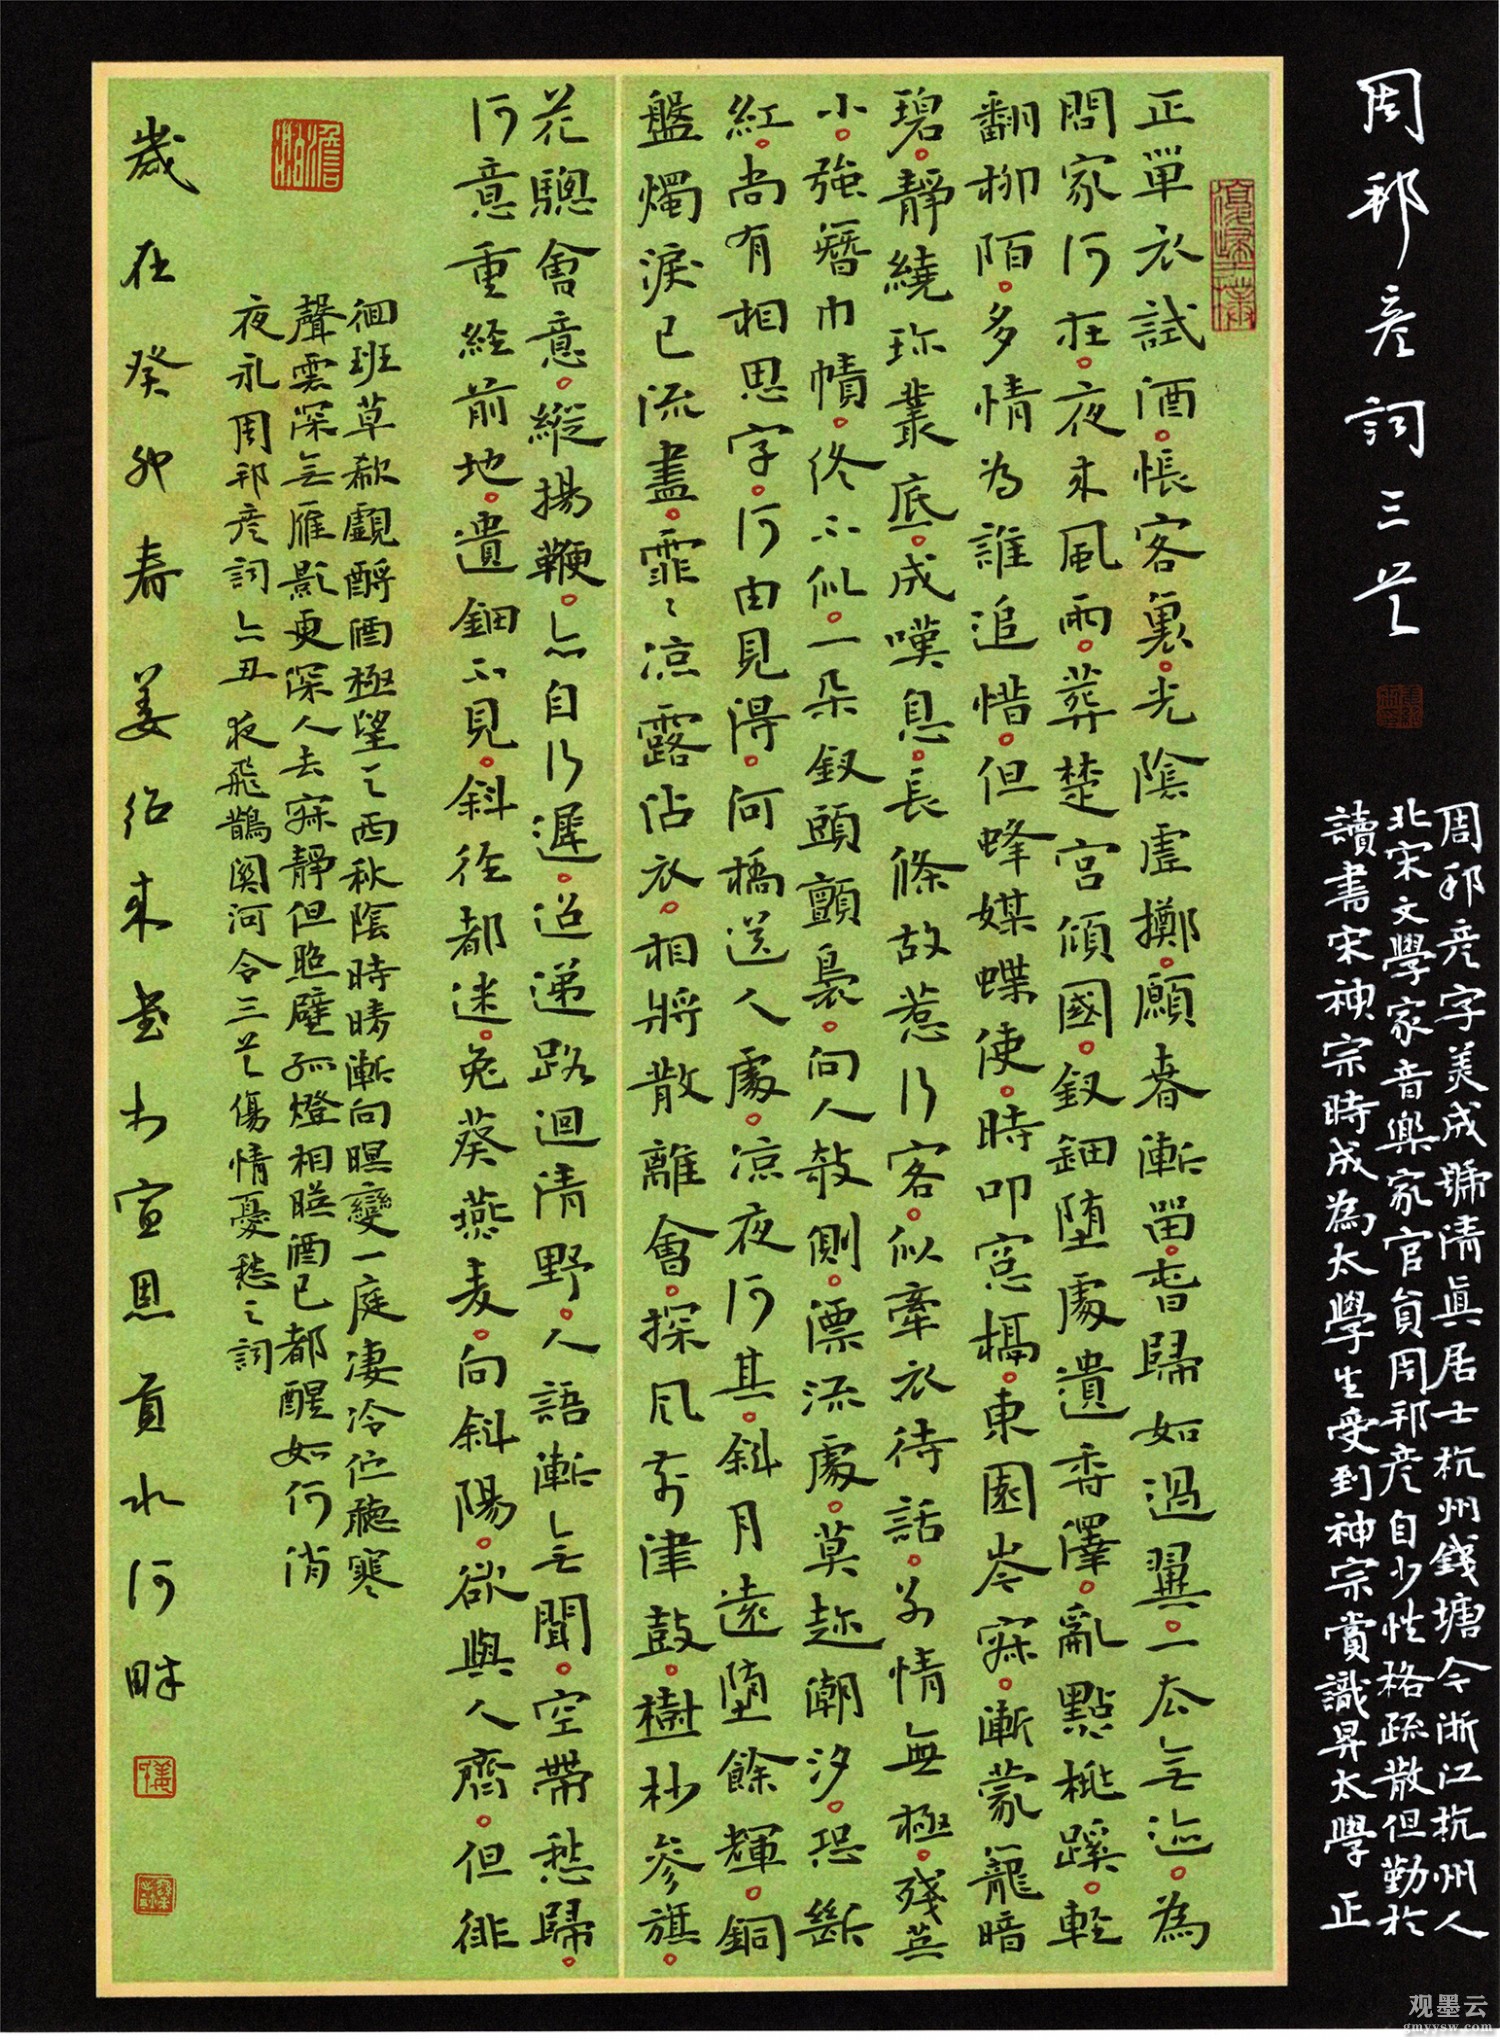 周邦彥詞三首
周邦彥字美成號清真居士杭州錢塘今浙江杭州人
北宋文學家音樂家官員周邦彥自少性格疏散但勤於
讀書宋神宗時成為太學生受到神宗賞識昇太學正
正單衣試酒。悵客裏。光陰虛擲。願春漸留。春歸如過翼。一去無迹。為
問家何在。夜來風雨。葬楚宮傾國。釵鈿墮處遺香澤。亂點桃蹊。輕
翻柳陌。多情為誰追惜。但蜂媒蝶使。時叩窓槅。東園岑寂。漸蒙籠暗
碧。靜繞珍叢底。成嘆息。長條故惹行客。似牽衣待話。別情無極。殘英
小。強簪巾幘。終不似。一朵釵頭顫裊。向人攲側。漂流處。莫趂潮汐。恐斷
紅。尚有相思字。何由見得。河橋送人處。涼夜何其。斜月遠墮餘輝。銅
盤燭淚已流盡。霏霏涼露沾衣。相將散離會。探風前津鼓。樹杪參旗。
花驄會意。縱揚鞭。亦自行遲。迢遞路迴清野。人語漸無聞。空帶愁歸。
何意重經前地。遺鈿不見。斜徑都迷。兔葵燕麥。向斜陽。欲與人齊。但徘
徊班草欷歔酹酒極望天西秋陰時晴漸向暝變一庭淒冷佇聽寒
聲雲深無雁影更深人去寂靜但照壁孤燈相映酒已都醒如何消
夜永周邦彥詞六丑夜飛鵲関河令三首傷情憂愁之詞
歲在癸卯春姜紹來書於宣恩貢水河畔
观墨云
gmyysw.com